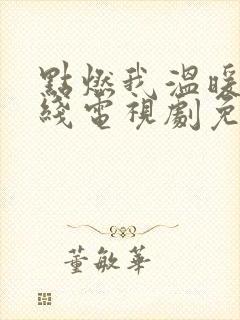 點燃我溫暖
綫電視劇免
董敏華